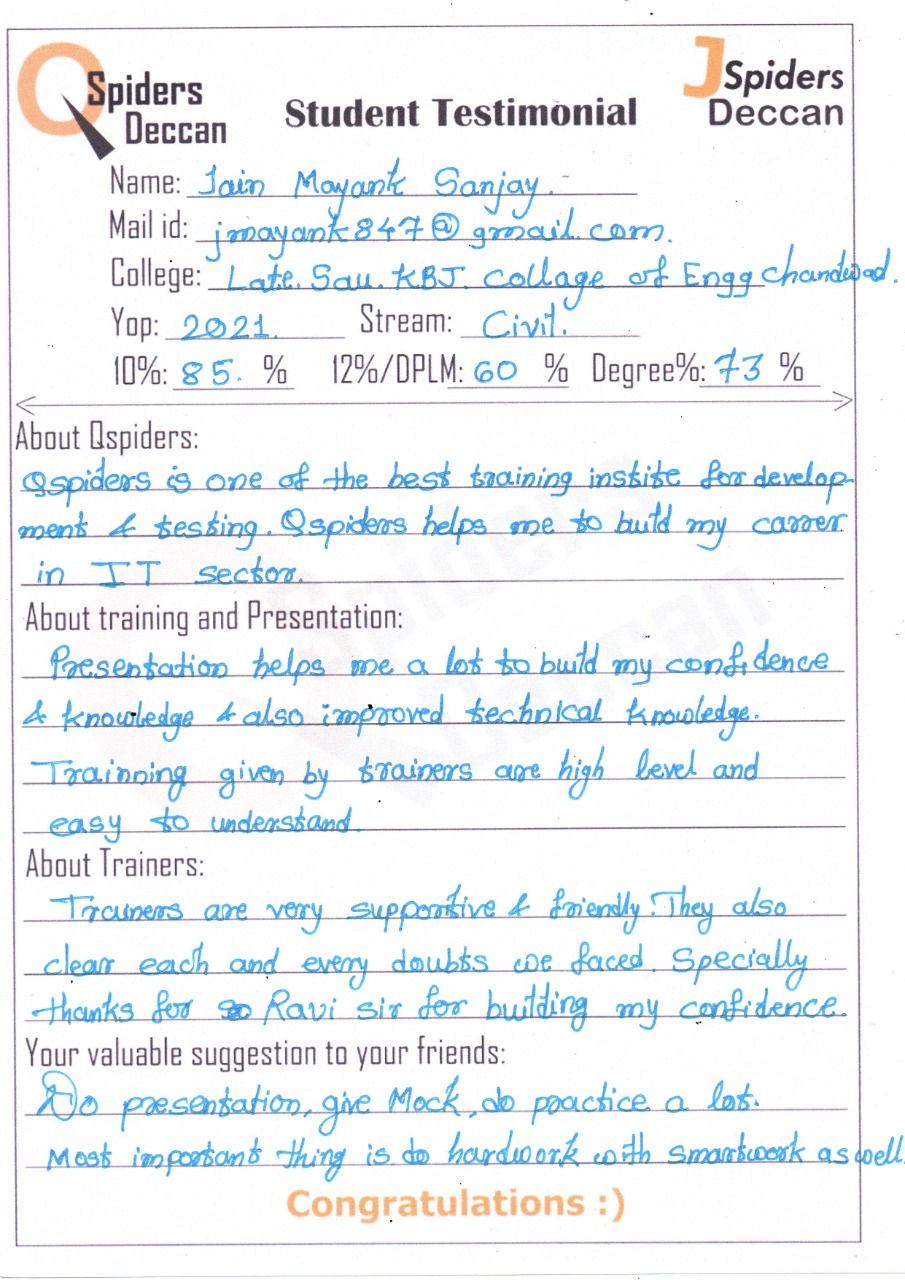 QSpiders
Deccan
Student Testimonial
JSpiders
Deccan
Name: Jain Mayank Sanjay.
Mail id: jmayank847@gmail.com.
College: Late. Sau. KBJ. Collage of Engg Chandwad.
Yop: 2021. Stream: Civil.
10%: 85. % 12%/DPLM: 60 % Degree%: 73 %
About Qspiders:
Qspiders is one of the best training instite for develop-
ment & testing. Qspiders helps me to build my carrer
in IT sector.
About training and Presentation:
Presentation helps me a lot to build my confidence
& knowledge & also improved technical knowledge.
Trainning given by trainers are high level and
easy to understand.
About Trainers:
Trainers are very supportive & friendly. They also
clear each and every doubts we faced. Specially
thanks for Ravi sir for building my confidence.
Your valuable suggestion to your friends:
Do presentation, give Mock, do practice a lot.
Most important thing is do hardwork with smartwork as well.
Congratulations :)
Spiders
Deccan